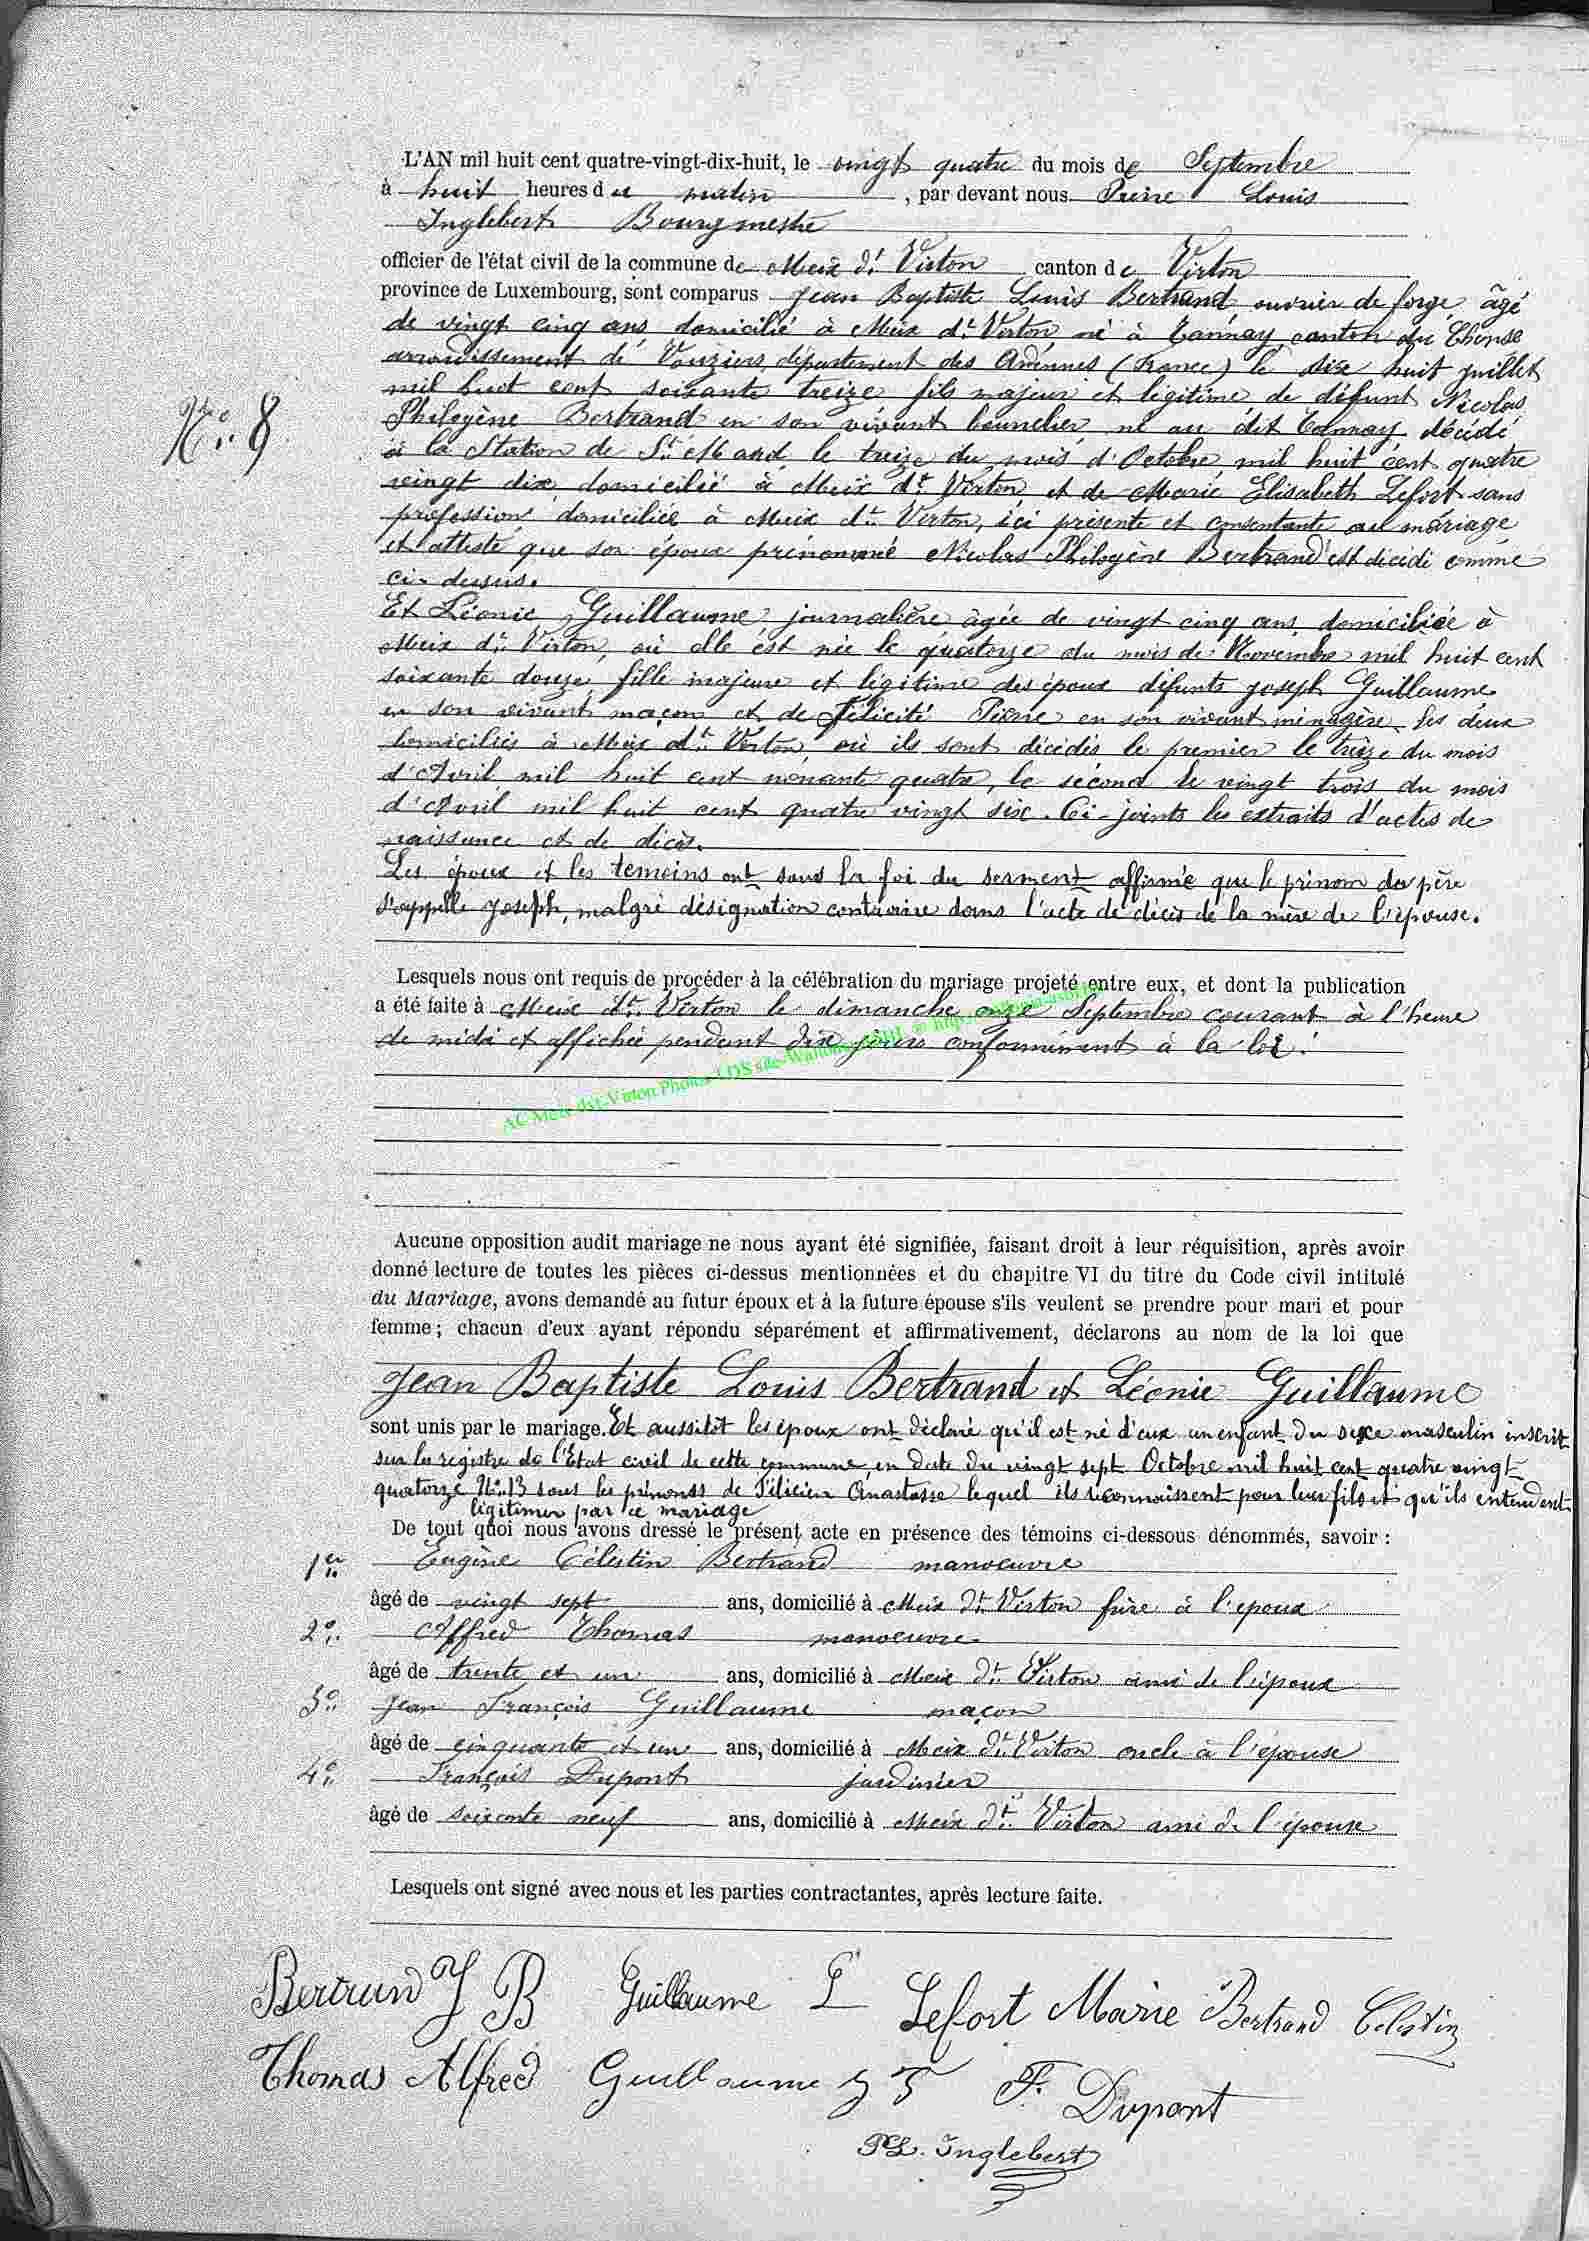 L'AN mil huit cent quatre-vingt-dix-huit, le vingt quatre du mois de Septembre
à huit heures du matin, par devant nous Pierre Louis
Inglebert Bourgmestre
officier de l'état civil de la commune de Meix dt Virton canton de Virton
province de Luxembourg, sont comparus Jean Baptiste Louis Bertrand, ouvrier de forge, âgé
de vingt cinq ans, domicilié à Meix dt Virton, né à Tannay, canton du Chense
arrondissement de Vouziers, département des Ardennes (France) le dix huit juillet
mil huit cent soixante treize fils majeur et légitime de défunt Nicolas
No 8
Philogène Bertrand en son vivant né au dit Tannay, décédé
à la Station de St Mard, le treize du mois d'Octobre mil huit cent quatre
vingt dix, domicilié à Meix dt Virton, et de Marie Elisabeth Lefort sans
profession domiciliée à Meix dt Virton, ici présente et consentante au mariage
et atteste que son époux prénommé Nicolas Philogène Bertrand est décédé comme
ci-dessus.
Et Léonie Guillaume journalière âgée de vingt cinq ans, domiciliée à
Meix dt Virton, où elle est née le quatorze du mois de Novembre mil huit cent
soixante douze, fille majeure et légitime des époux défunts Joseph Guillaume
en son vivant maçon et de Félicité Pierre en son vivant ménagère les deux
domiciliés à Meix dt Virton, où ils sont décédés le premier le treize du mois
d'Avril mil huit cent nonante quatre, le second le vingt trois du mois
d'Avril mil huit cent quatre vingt six. Ci-joints les extraits d'actes de
naissance et de décès.
Les époux et les temoins ont sous la foi du serment affirmé que le prénom du père
s'appelle Joseph, malgré désignation contraire dans l'acte de décès de la mère de l'épouse.
Lesquels nous ont requis de procéder à la célébration du mariage projeté entre eux, et dont la publication
a été faite à Meix dt Virton le dimanche onze Septembre courant à l'heure
de midi et affichée pendant dix jours conformément à la loi.
AC Meix-dvt-Virton Photos LDS site Wallonia ASBL © http://
Aucune opposition audit mariage ne nous ayant été signifiée, faisant droit à leur réquisition, après avoir
donné lecture de toutes les pièces ci-dessus mentionnées et du chapitre VI du titre du Code civil intitulé
du Mariage, avons demandé au futur époux et à la future épouse s'ils veulent se prendre pour mari et pour
femme; chacun d'eux ayant répondu séparément et affirmativement, déclarons au nom de la loi que
Jean Baptiste Louis Bertrand et Léonie Guillaume
sont unis par le mariage. Et aussitôt les époux ont déclaré qu'il est né d'eux un enfant du sexe masculin inscrit
sur les registre de l'Etat civil de cette commune, en date du vingt sept Octobre mil huit cent quatre vingt
quatorze No 13 sous les prénoms de Félicien Anastasse lequel ils reconnaissent pour leur fils et qu'ils entendent
légitimer par ce mariage
De tout quoi nous avons dressé le présent acte en présence des témoins ci-dessous dénommés, savoir :
1er Eugène Célestin Bertrand manoeuvre
âgé de vingt sept ans, domicilié à Meix dt Virton frère à l'epoux
2o Alfred Thomas manoeuvre
âgé de trente et un ans, domicilié à Meix dt Virton ami de l'époux
3o Jean François Guillaume maçon
âgé de cinquante et un ans, domicilié à Meix dt Virton oncle à l'épouse
4o François Dupont jardinier
âgé de soixante neuf ans, domicilié à Meix dt Virton ami de l'épouse
Lesquels ont signé avec nous et les parties contractantes, après lecture faite.
Bertrand J B Guillaume L Lefort Marie Bertrand Celestin
Thomas Alfred Guillaume J F F. Dupont
PL. Inglebert